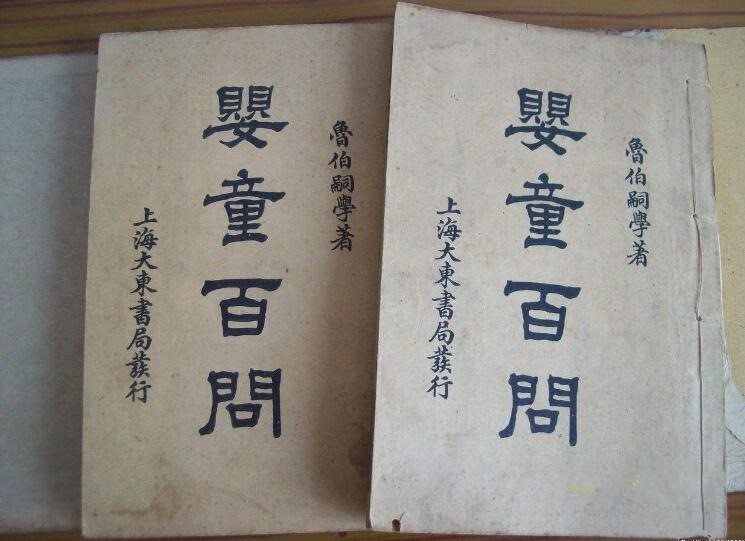 魯伯嗣學著
嬰童百問
上海大東書局發行
魯伯嗣學著
嬰童百問
上海大東書局發行